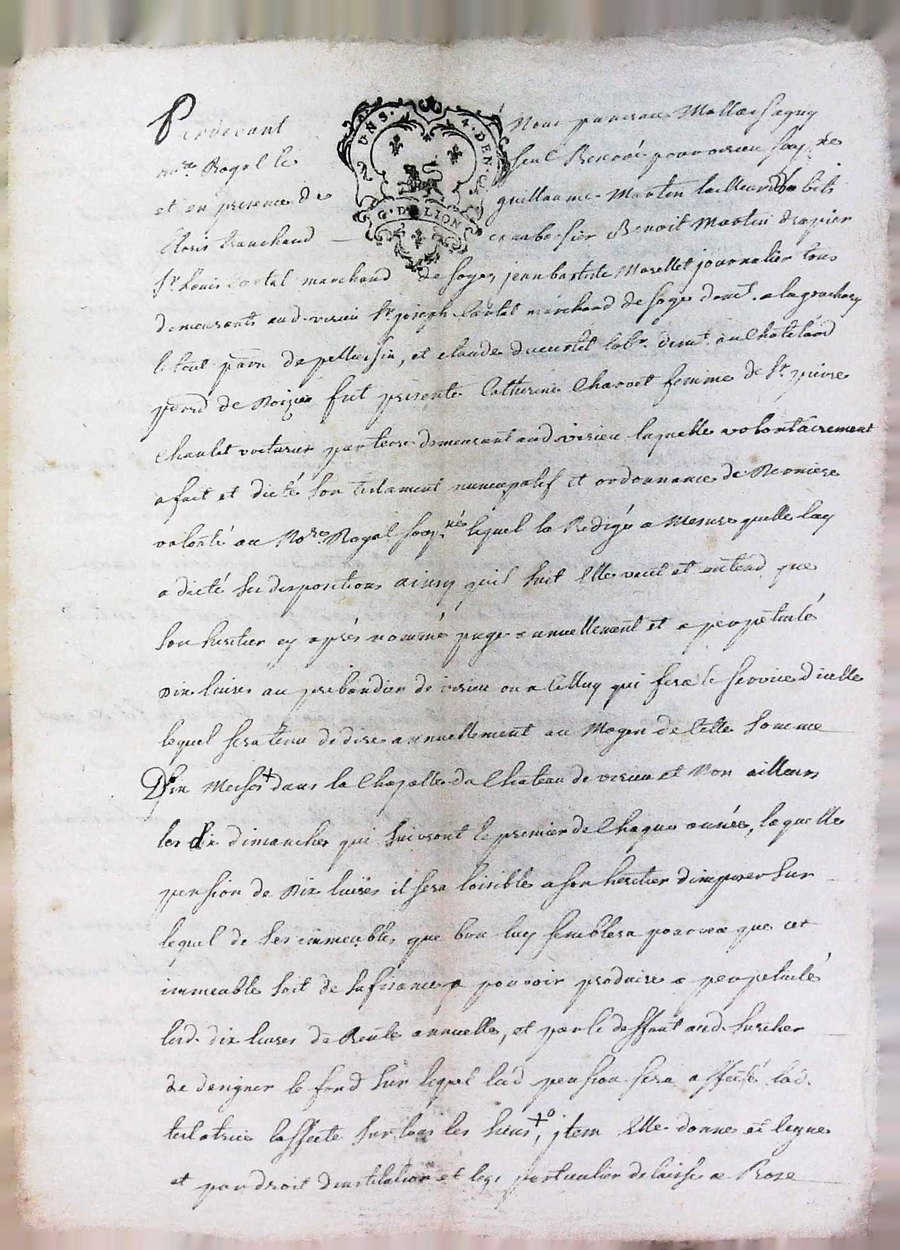 Pardevant
nore Royal le
et en presence de
Cloris Franchaud
UNS. 4. DEN.
G. D. LION
guillaume Martin tailleur Dhabits
Benoit Martin drapier
Sr Louis marchand de soyes jean bastiste Morellet journalier tous
demeurants aud virieu Sr joseph marchand de soye demt. a
le tout parre de pellussin, et claude labr. demt. au Chatelard
parre de fut presente Catherine Chavot femme de Sr pierre
Chaulet voiturier par terre demeurant aud virieu laquelle volontairement
a fait et dicté son testament nuncupatif et ordonnance de Derniere
volonté au Nore Royal lequel la Redigé a Mesure quelle luy
a dicté ses dispositions ainsy quil suit Elle veut et entend que
son heritier cy après nommé paye annuellement et a perpetuité
Dix livres au prebandier de virieu ou a Celluy qui fera le service dicelle
lequel sera tenu de dire annuellement au Moyen de Cette somme
Dix Messes dans la Chapelle du Chateau de virieu et Non ailleurs
les dix dimanches qui suivront le premier de Chaque année, laquelle
pension de Dix livres il sera loisible a son heritier dimposer sur
lequel de ses immeubles que bon luy semblera pourvu que cet
immeuble soit de sufisance a pouvoir produire a perpetuité
lesd. dix livres de Rente annuelle, et par le deffaut aud. heritier
de designer le fond sur lequel lad pension sera affecté lad.
testatrice laffecte sur tous les siens, jtem Elle donne et legue
et par droit dinstitution et legs particulier delaisse a Rose